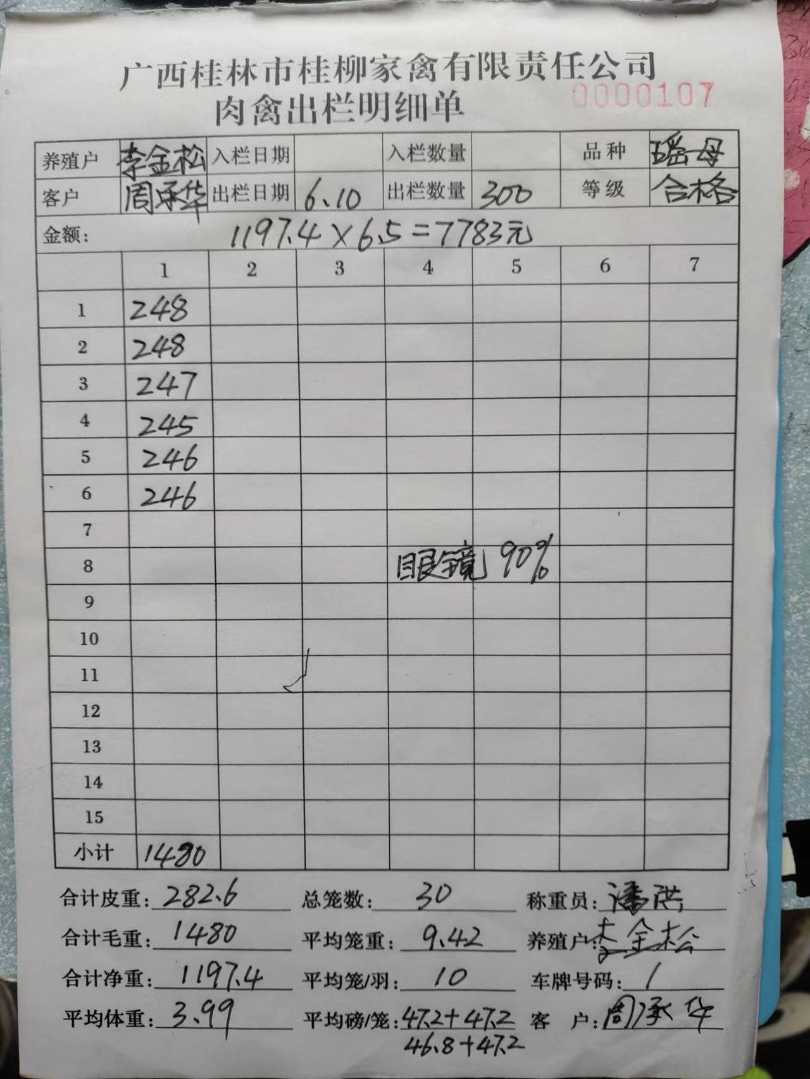 广西桂林市桂柳家禽有限责任公司
肉禽出栏明细单 0000107
养殖户 李金松 入栏日期 入栏数量 品种 瑶母
客户 周承华 出栏日期 6.10 出栏数量 300 等级 合格
金额: 1197.4×6.5=7783元
1 2 3 4 5 6 7
1 248
2 248
3 247
4 245
5 246
6 246
7
8 眼镜 90%
9
10
11
12
13
14
15
小计 1480
合计皮重: 282.6 总笼数: 30 称重员: 潘洪
合计毛重: 1480 平均笼重: 9.42 养殖户: 李金松
合计净重: 1197.4 平均笼/羽: 10 车牌号码: /
平均体重: 3.99 平均磅/笼: 47.2+47.2 客 户: 周承华
46.8+47.2